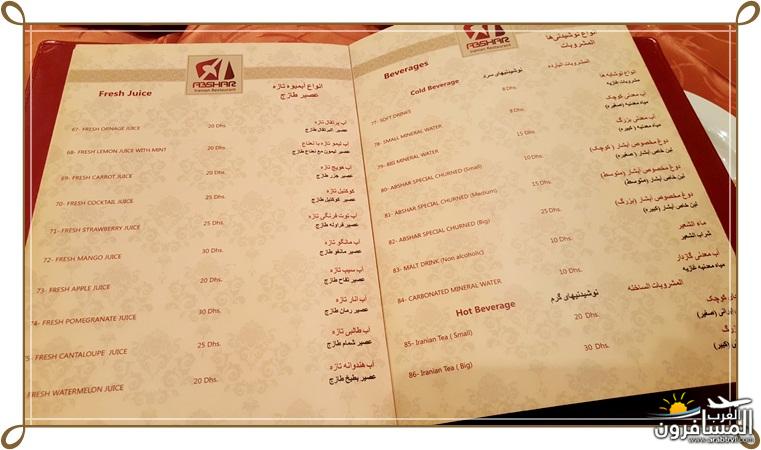 ABSHAR
Iranian Restaurant
Fresh Juice
انواع آبمیوه تازه
عصير طازج
67- FRESH ORNAGE JUICE 20 Dhs. آب پرتقال تازه
عصير البرتقال طازج
68- FRESH LEMON JUICE WITH MINT 20 Dhs. آب لیمو تازه با نعناع
عصير ليمون مع نعناع طازج
69- FRESH CARROT JUICE 20 Dhs. آب هویج تازه
عصير جزر طازج
70- FRESH COCKTAIL JUICE 25 Dhs. کوکتیل تازه
عصير كوكتيل طازج
71- FRESH STRAWBERRY JUICE 25 Dhs. آب توت فرنگی تازه
عصير فراوله طازج
72- FRESH MANGO JUICE 30 Dhs. آب مانگو تازه
عصير مانغو طازج
73- FRESH APPLE JUICE 20 Dhs. آب سیب تازه
عصير تفاح طازج
74- FRESH POMEGRANATE JUICE 30 Dhs. آب انار تازه
عصير رمان طازج
75- FRESH CANTALOUPE JUICE 25 Dhs. آب طالبی تازه
عصير شمام طازج
FRESH WATERMELON JUICE 20 Dhs. آب هندوانه تازه
عصير بطيخ طازج
ABSHAR
Iranian Restaurant
Beverages
انواع نوشیدنی‌ها
المشروبات
Cold Beverage نوشیدنیهای سرد المشروبات الباردة
77- SOFT DRINKS 8 Dhs. انواع نوشابه ها
مشروبات غازيه
78- SMALL MINERAL WATER 8 Dhs. آب معدنی کوچک
مياه معدنيه (صغيره)
79- BIG MINERAL WATER 15 Dhs. آب معدنی بزرگ
مياه معدنيه (كبيره)
80- ABSHAR SPECIAL CHURNED (Small) 10 Dhs. دوغ مخصوص آبشار (کوچک)
لبن خاص آبشار (صغيره)
81- ABSHAR SPECIAL CHURNED (Medium) 15 Dhs. دوغ مخصوص آبشار (متوسط)
لبن خاص آبشار (متوسط)
82- ABSHAR SPECIAL CHURNED (Big) 25 Dhs. دوغ مخصوص آبشار (بزرگ)
لبن خاص آبشار (كبيره)
83- MALT DRINK (Non alcoholic) 10 Dhs. ماء الشعیر
شراب الشعير
84- CARBONATED MINERAL WATER 10 Dhs. آب معدنی گازدار
مياه معدنيه غازيه
Hot Beverage نوشیدنیهای گرم المشروبات الساخنه
85- Iranian Tea ( Small) 20 Dhs. کوچک
(صغير)
86- Iranian Tea ( Big) 30 Dhs. بزرگ
(كبير)
العرب المسافرون
www.arabtrvl.com